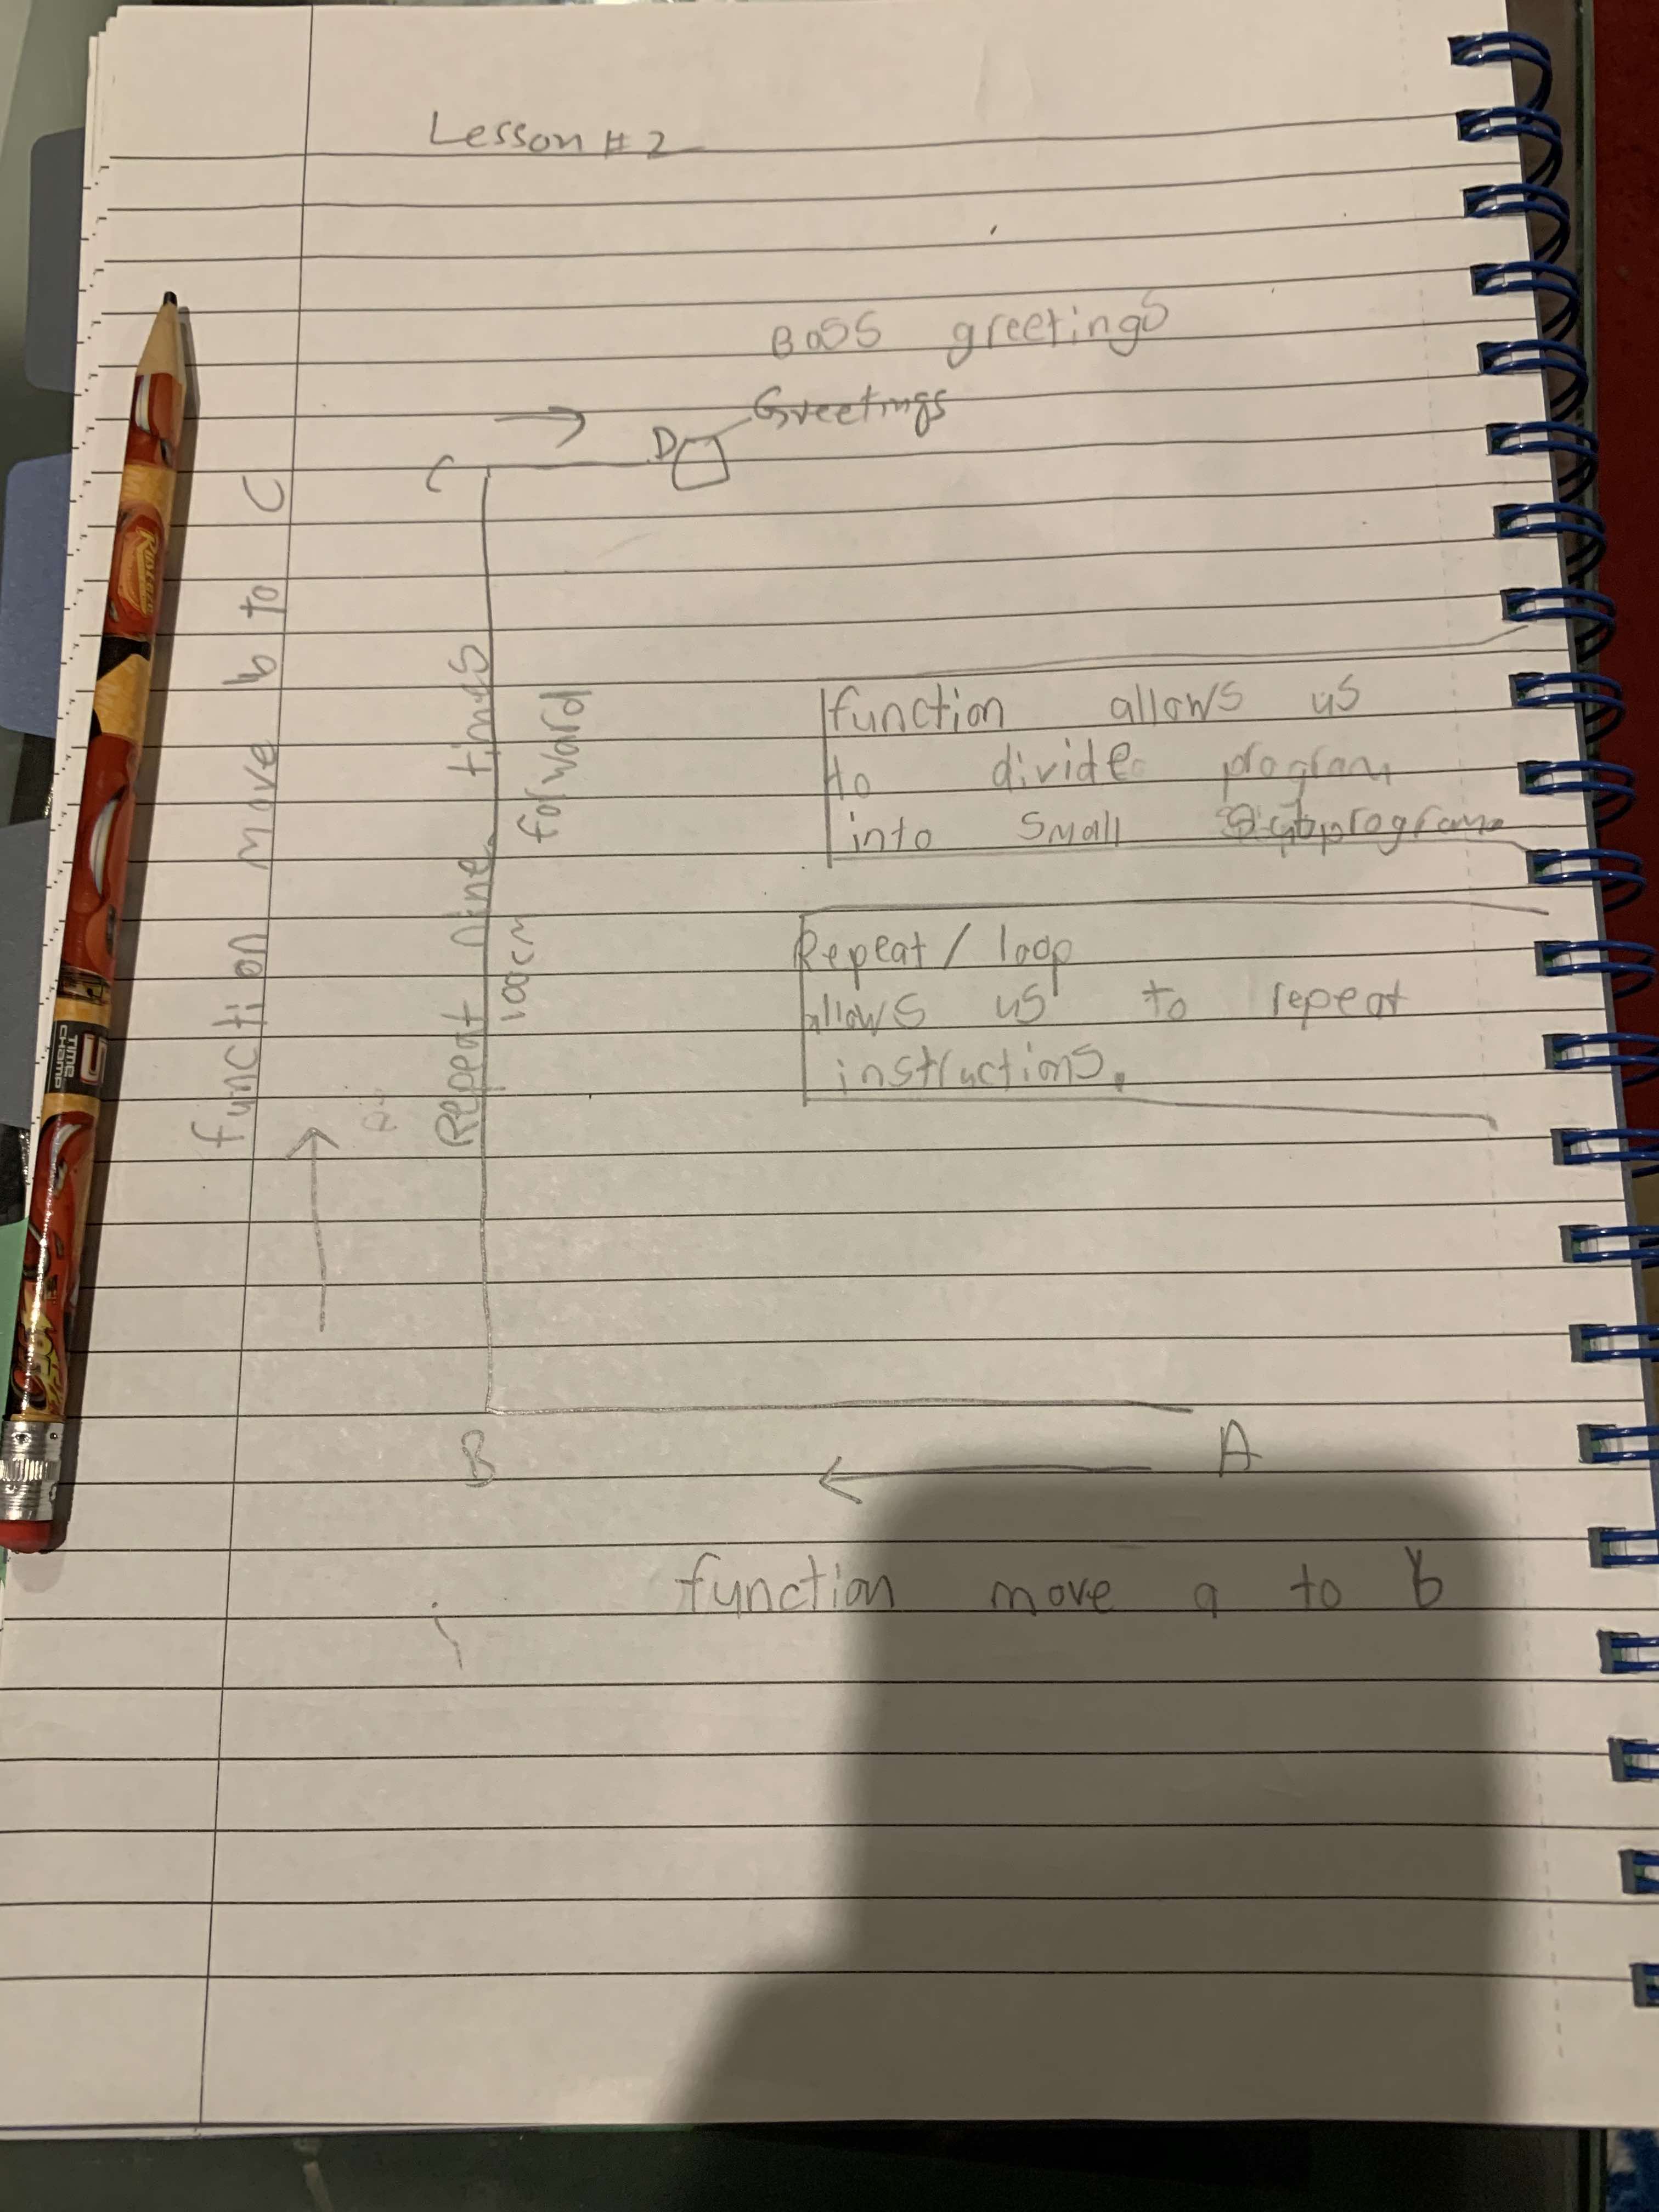 Lesson # 2
Boss greetings
Greetings
D
C
function move b to C
Repeat nine times
100cm forward
function allows us
to divide program
into small subprogram
Repeat / loop
allows us to repeat
instructions.
B
A
function move a to b
TIME
CHAMP